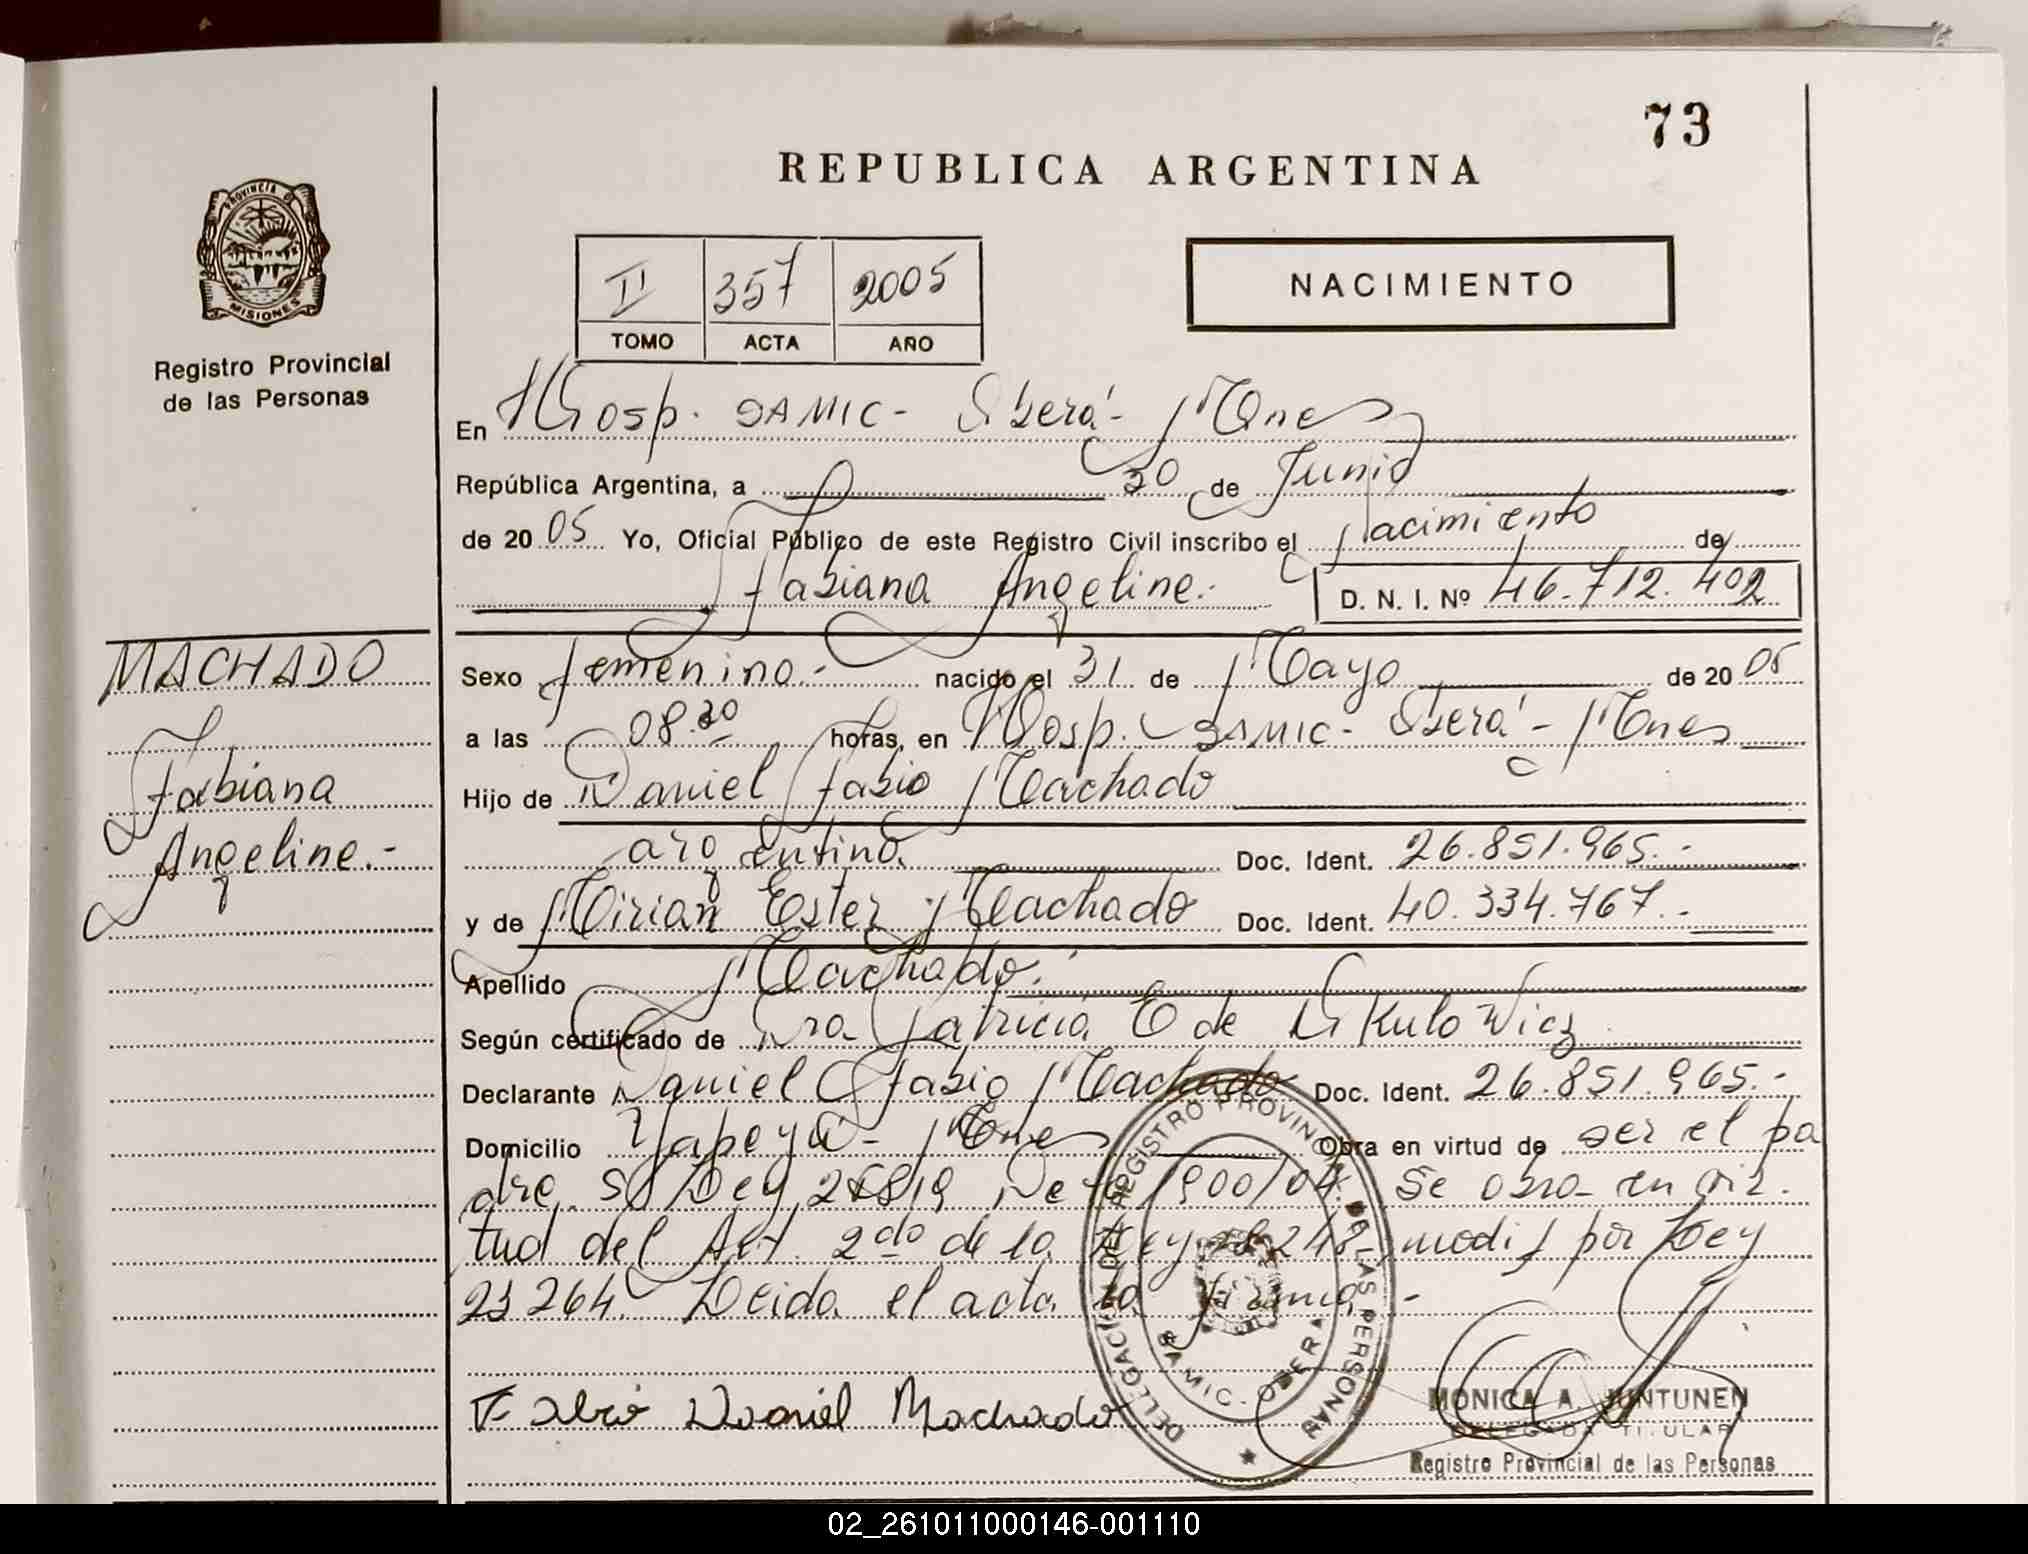 73
REPUBLICA ARGENTINA
PROVINCIA DE
MISIONES
Registro Provincial
de las Personas
II 357 2005
TOMO ACTA AÑO
NACIMIENTO
En Hosp. SAMIC - Oberá - Mnes
República Argentina, a 30 de Junio
de 2005 Yo, Oficial Público de este Registro Civil inscribo el Nacimiento de
Fabiana Angeline.- D. N. I. Nº 46.712.402
MACHADO
Fabiana
Angeline.-
Sexo femenino.- nacido el 31 de Mayo de 2005
a las 08.30 horas, en Hosp. SAMIC - Oberá - Mnes
Hijo de Daniel Fabio Machado
argentino. Doc. Ident. 26.851.965.-
y de Mirian Ester Machado Doc. Ident. 40.334.767.-
Apellido Machado.
Según certificado de Dra Patricia E de Nikulowicz
Declarante Daniel Fabio Machado Doc. Ident. 26.851.965.-
Domicilio Yapeyú - Mnes Obra en virtud de ser el pa
dre. S/ Ley 25819 Dcto 1900/04. Se obra en vir
tud del Art. 2do de la Ley 18248 modif por Ley
23264. Leida el acta la firma.-
Fabio Daniel Machado
DELEGACION DEL REGISTRO PROVINCIAL DE LAS PERSONAS
SAMIC - OBERA
MONICA A. JUNTUNEN
DELEGADA TITULAR
Registro Provincial de las Personas
02_261011000146-001110